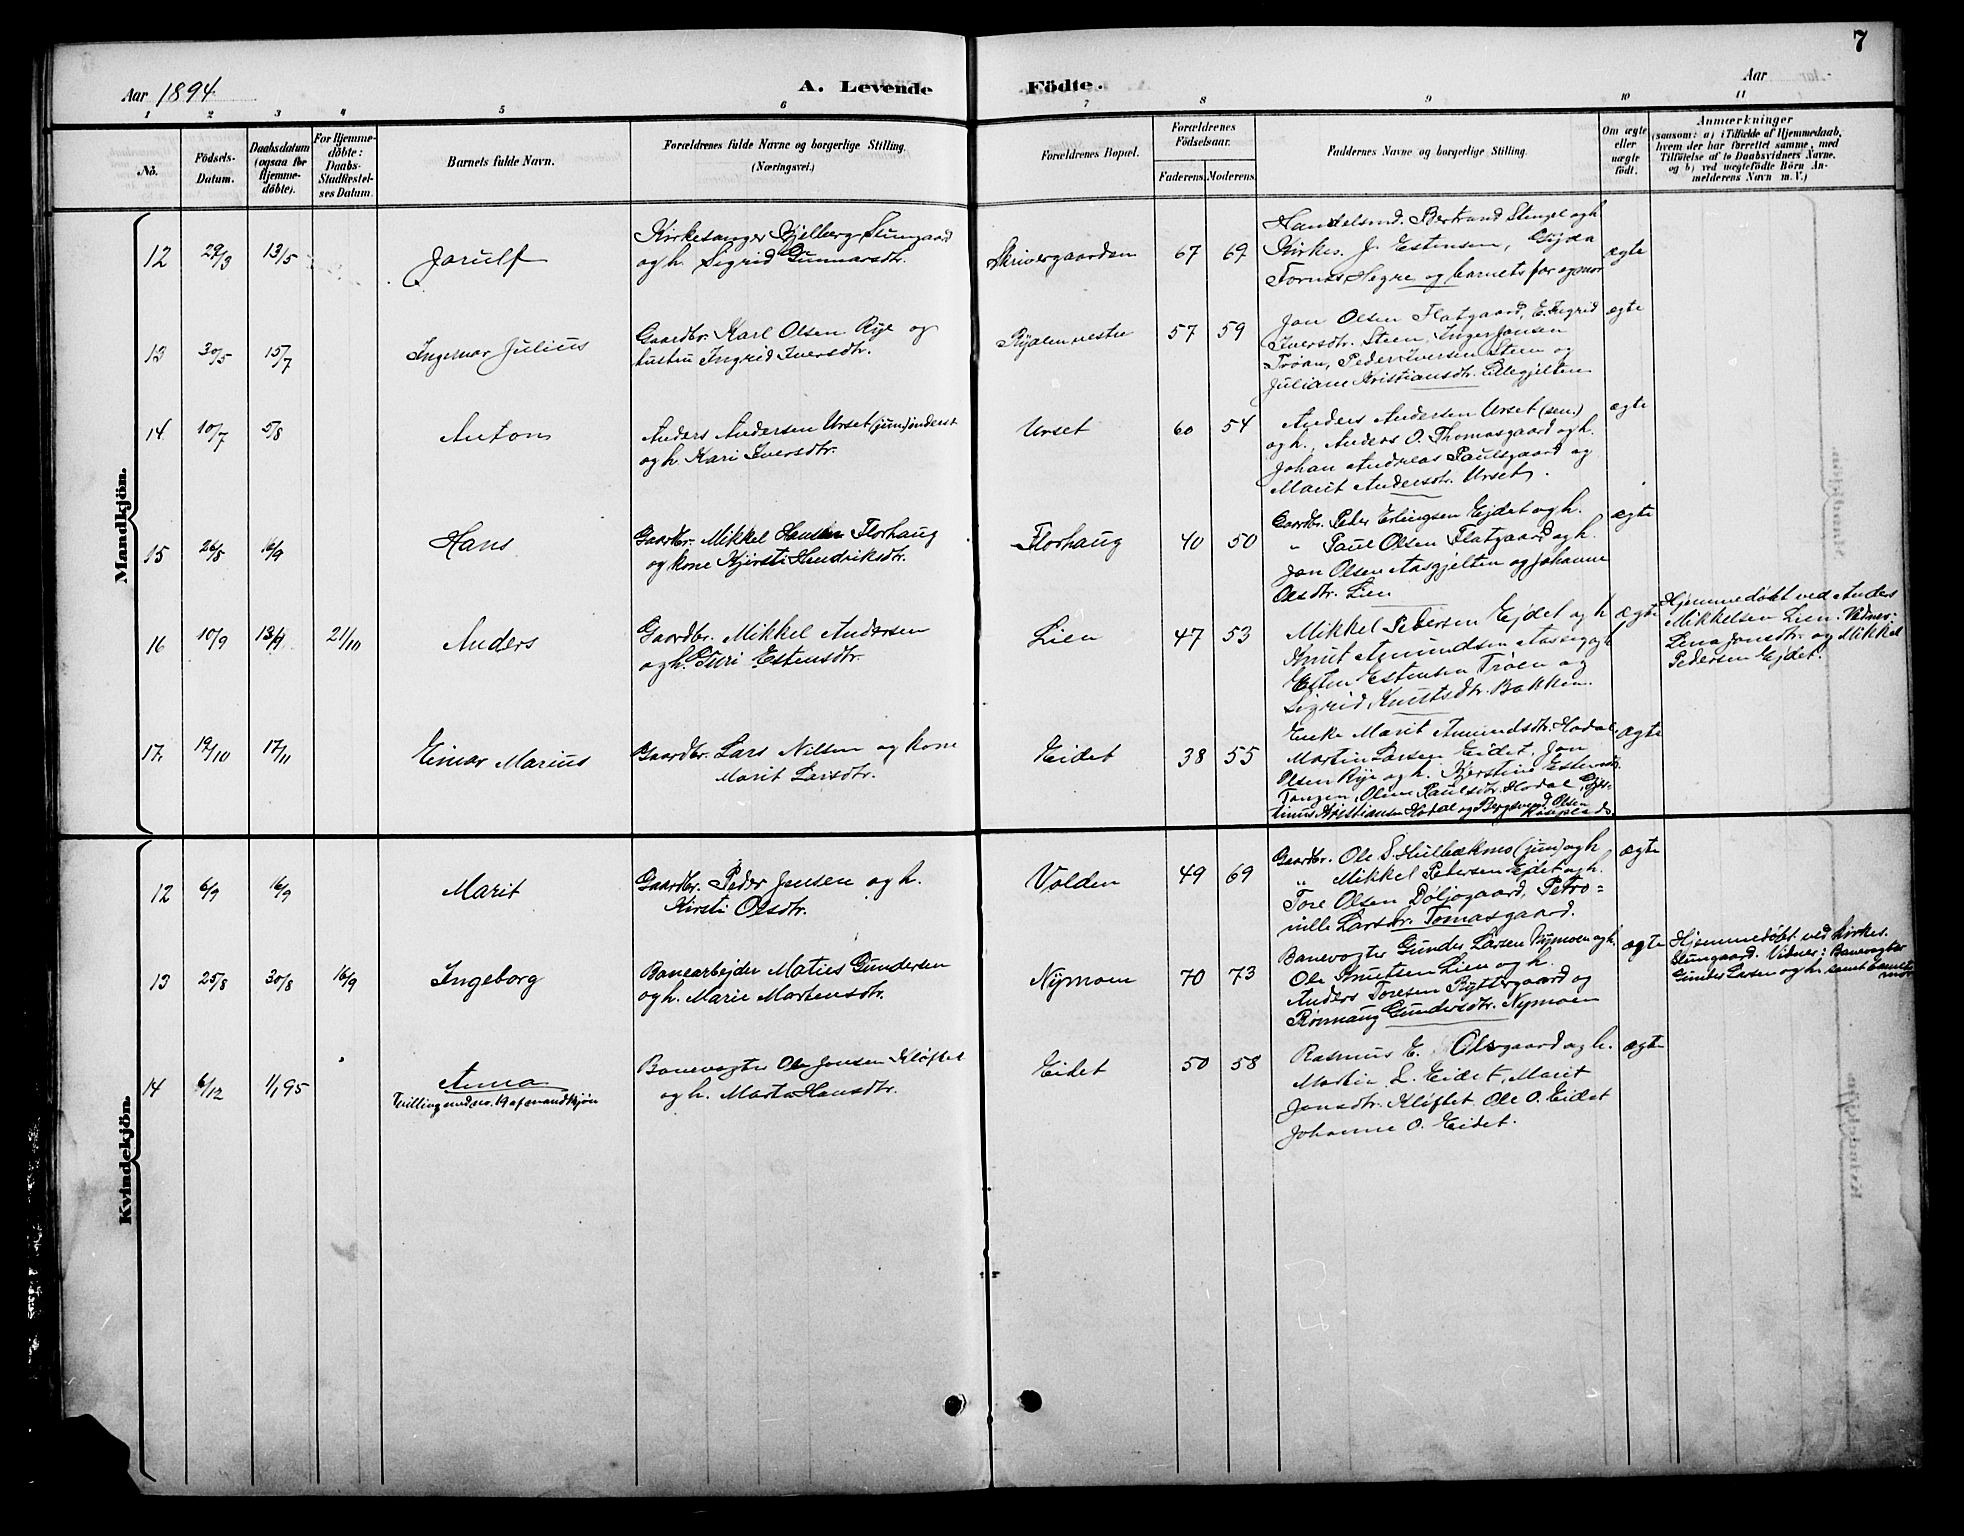 7
Aar 1894
A. Levende
Födte.
Aar
1 2 3 4 5 6 7 8 9 10 11
No.
Födsels-
Datum.
Daabsdatum
(ogsaa for
Hjemme-
döbte).
For Hjemme-
döbte:
Daabs-
Stadfæstel-
ses Datum.
Barnets fulde Navn.
Forældrenes fulde Navne og borgerlige Stilling.
(Næringsvei.)
Forældrenes Bopæl.
Forældrenes
Födselsaar.
Faderens. Moderens.
Faddernes Navne og borgerlige Stilling.
Om ægte
eller
uægte
født.
Anmærkninger
(saasom: a) i Tilfælde af Hjemmedaab,
hvem der har forrettet samme, med
Tilföielse af to Daabsvidners Navne,
og b) ved uægtefödte Börn An-
melderens Navn m. V.)
Mandkjön.
12 29/3 13/5
Jorulf
Kirkesanger Kjelberg Slungaard
og h. Sigrid Gunnarsdtr.
Skrivergaarden
67 69
Handelsmd. Bertrand Stengel og h.
Kirkes. J. Estensen, Gyda
Tornæs Hegre og barnets far og mor
ægte
13 30/5 15/7
Ingemar Julius
Gaardbr. Karl Olsen Rye og
hustru Ingrid Iversdtr.
Ryalen vestre
57 59
Jon Olsen Flatgaard, E. Sigrid
Iversdtr. Steen, Inger Jonsen
Trøan, Peder Iversen Steen og
Juliane Kristiansdtr. Lillegjelten
ægte
14 10/7 5/8
Anton
Anders Andersen Urset (jun) inderst
og h. Kari Iversdtr.
Urset
60 54
Anders Andersen Urset (sen.)
og h., Anders O. Thomasgaard og h.
Johan Andreas Paulsgaard og
Marit Andersdtr. Urset.
ægte
15 26/8 16/9
Hans
Gaardbr. Mikkel Hansen Florhaug
og kone Kjersti Hendriksdtr.
Florhaug
40 50
Gaardbr. Peder Erlingsen Ejdet og h.
" Paul Olsen Flatgaard og h.
Jon Olsen Aasgjelten og Johanne
Olsdtr. Lien
ægte
16 10/9 21/10
Anders
Gaardbr. Mikkel Andersen
og h. Guri Estensdtr.
Lien
47 53
Mikkel Pedersen Ejdet og h
Knut Amundsen
Esten Estensen Trøen og
Sigrid Knutsdtr. Bakken.
ægte
Hjemmedøbt ved Anders
Mikkelsen Lien. Vidner:
Lena Jonsdtr. og Mikkel
Pedersen Ejdet.
17. 19/10 17/11
Einar Marius
Gaardbr. Lars Nilsen og kone
Marit Larsdtr.
Eidet
38 55
Enke Marit Amundsdtr. Hodal
Martin Larsen Eidet, Jon
Olsen Rye og h. Kjerstine Estensdtr.
Tangen, Oline Paulsdtr. Hodal,
Kristiansen Hodal og Bergsvend Olsen
ægte
Kvindekjön.
12 6/9 16/9
Marit
Gaardbr. Peder Jensen og h.
Kirsti Olsdtr.
Volden
49 69
Gaardbr. Ole S. Hulbækmo (jun) og h
" Mikkel Pedersen Ejdet og h.
Tore Olsen Døljogaard, Petro=
nille Larsdr. Tomasgaard.
ægte
13 25/8 30/8 16/9
Ingeborg
Banearbejder Maties Gundersen
og h. Marie Mortensdtr.
Nymoen
70 73
Banevogter Gunder Larsen Nymoen og h.
Ole Knutsen Lien og h.
Anders Toresen Ryttergaard og
Rønnaug Gundersdtr. Nymoen
ægte
Hjemmedøbt ved kirkes.
Slungaard. Vidner: Banevogter
Gunder Larsen og h. samt barnets
mor
14 6/12 1/1 95
Anna
Tvilling med no. 19 af mandkjøn
Banevogter Ole Jonsen Kløftet
og h. Marta Hansdtr.
Eidet
50 58
Rasmus E. Olsgaard og h.
Martin L. Eidet, Marit
Jonsdtr. Kløftet Ole O. Eidet
Johanne O. Eidet.
ægte